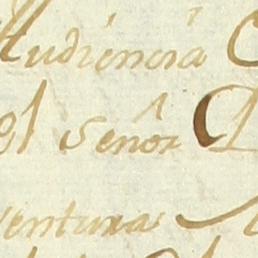 Audiencia
el señor
ventura